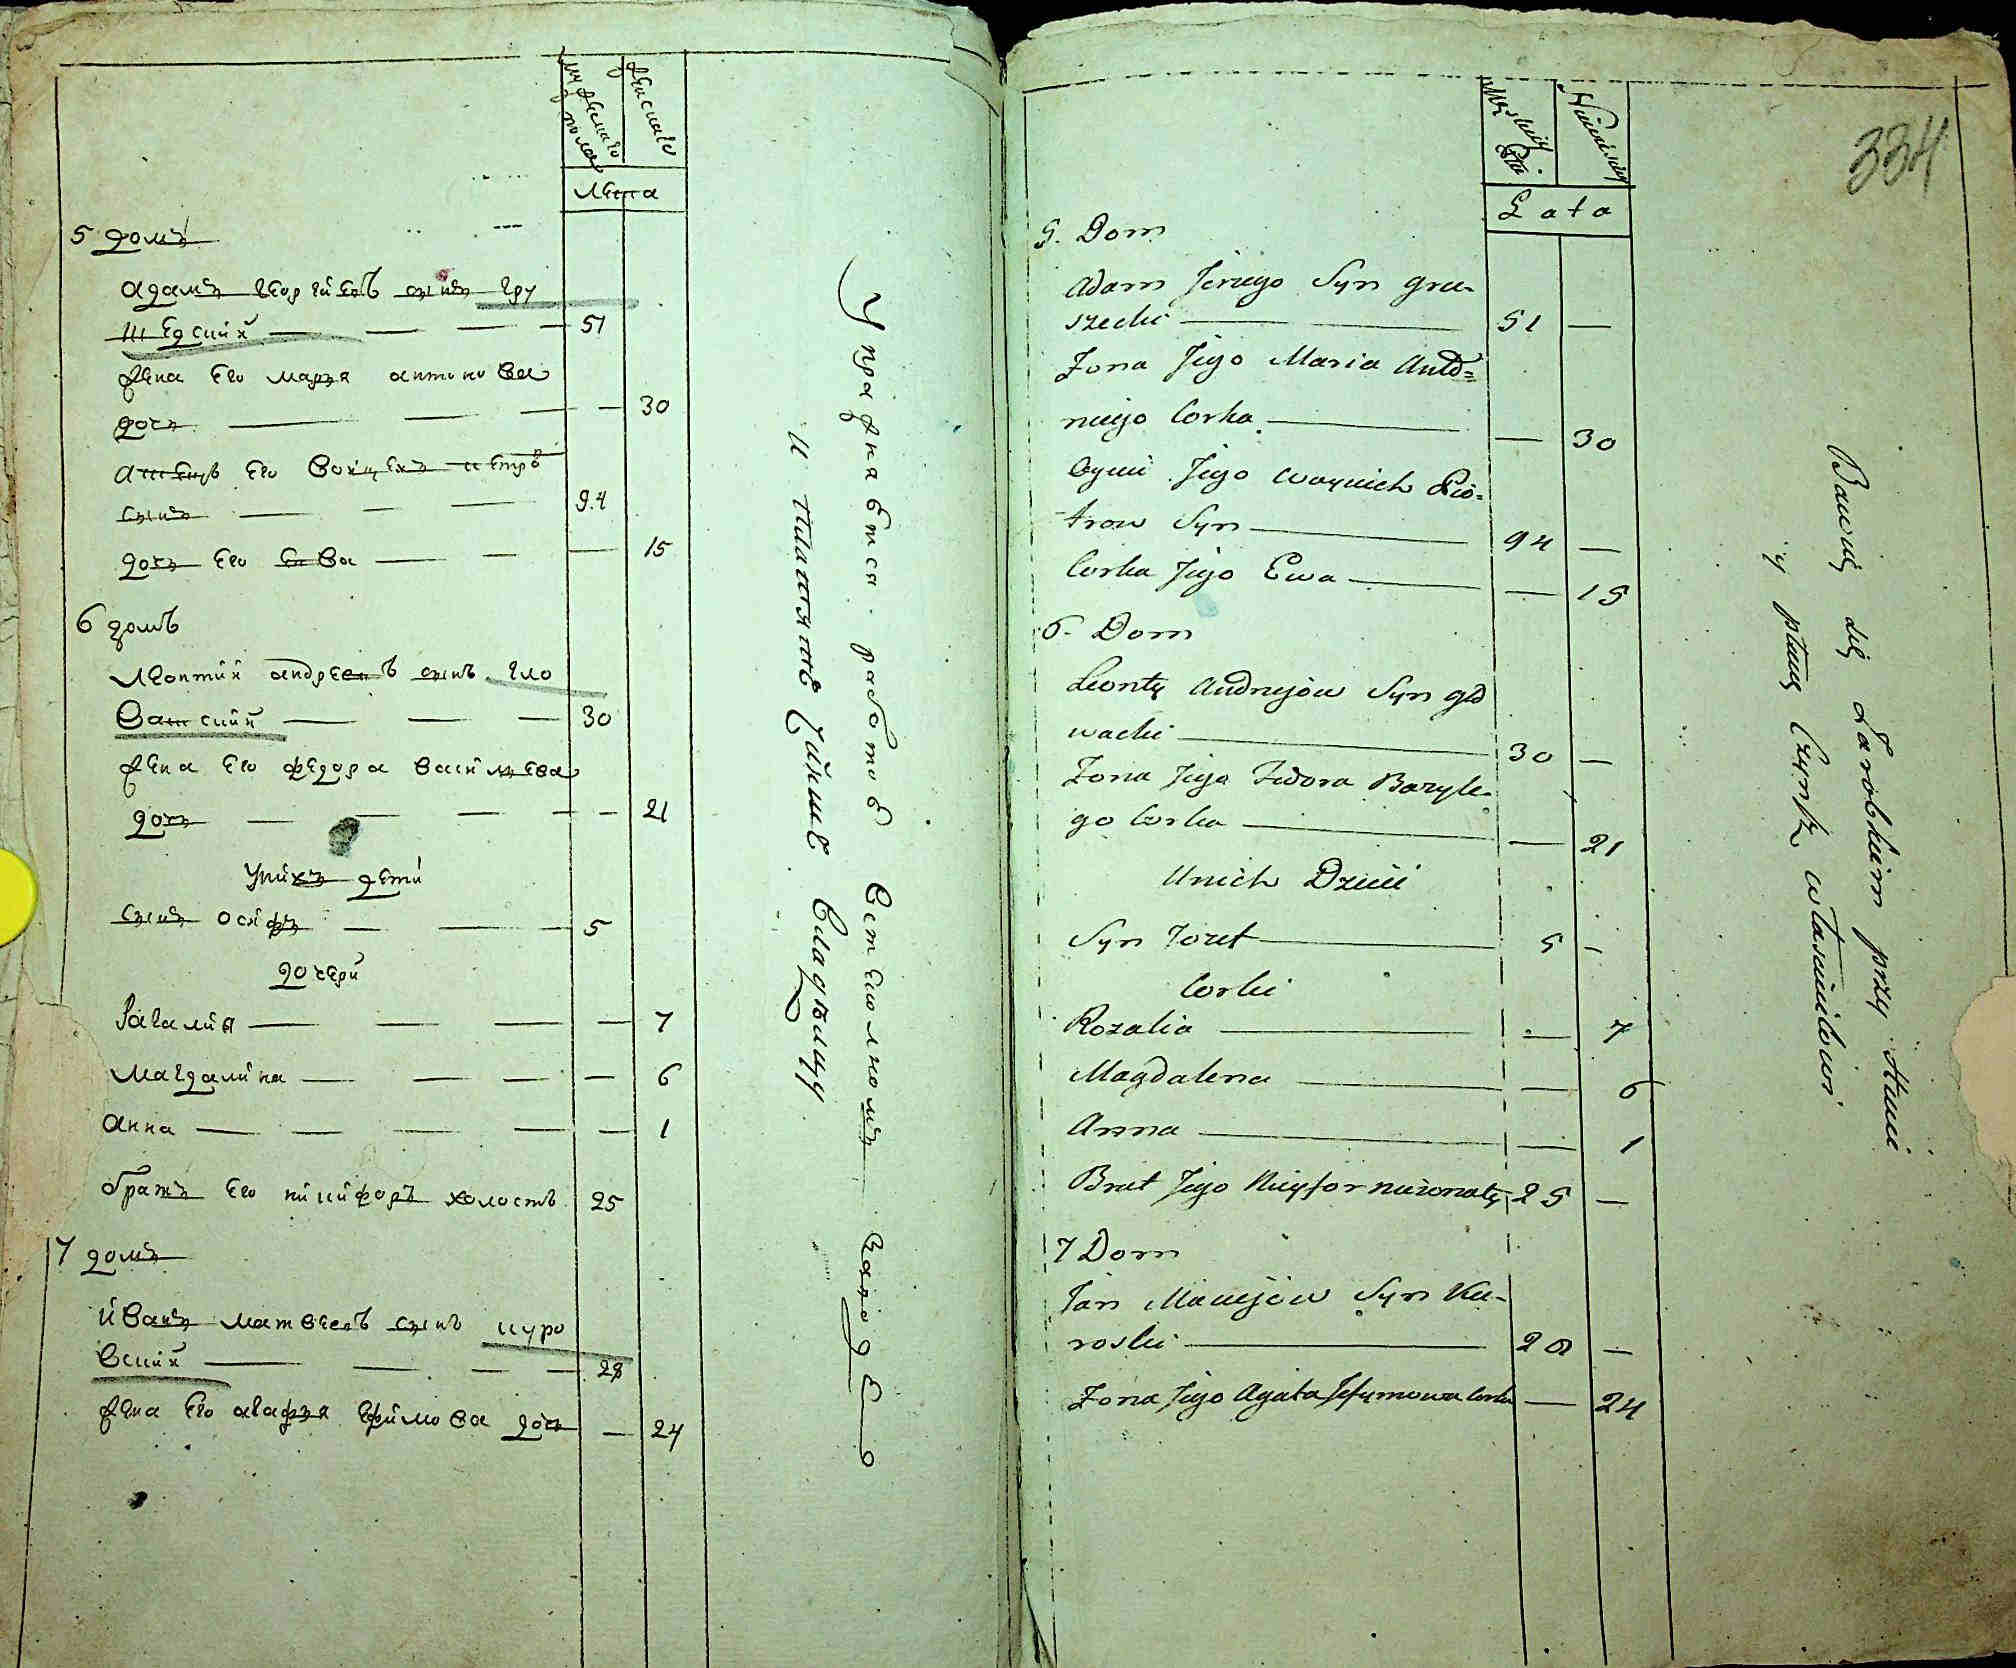 мужеска пола
женска
Лета
5 домъ
адамъ георгіевъ сынъ гру
шецкий 51
жена его марья антонова
дочь 30
атецъ его войцехъ петро
сынъ 94
дочь его Ева 15
6 домъ
Леонтий андреевъ сынъ гло
вацкий 30
жена его федора васильева
дочь 21
у них дети
сынъ осифъ 5
дочери
Разалия 7
Магдалина 6
анна 1
братъ его никифоръ холостъ 25
7 домъ
иванъ матвеевъ сынъ куро
вский 28
жена его агафья ефимова дочь 24
Упражняются работою в стекольномъ заводе
и платятъ чиншъ владельцу
334
Męskiey Płci
Żenskiey
Lata
5. Dom
Adam Jerzego Syn Gru-
szecki 51
Zona Jego Maria Anto-
niego Corka 30
Oyciec Jego Woyciech Pio-
trow Syn 94
Corka Jego Ewa 15
6. Dom
Leonty Andrzejow Syn Gło
wacki 30
Zona Jego Fedora Bazyle-
go Corka 21
U nich Dzieci
Syn Jozef 5
Corki
Rozalia 7
Magdalena 6
Anna 1
Brat Jego Nicyfor nieżonaty 25
7 Dom
Jan Maciejow Syn Ku-
roski 28
Zona Jego Agata Jefymowa Corka 24
Bawią się Zarobkiem przy Hucie
y płacą Czynsz właścicielowi